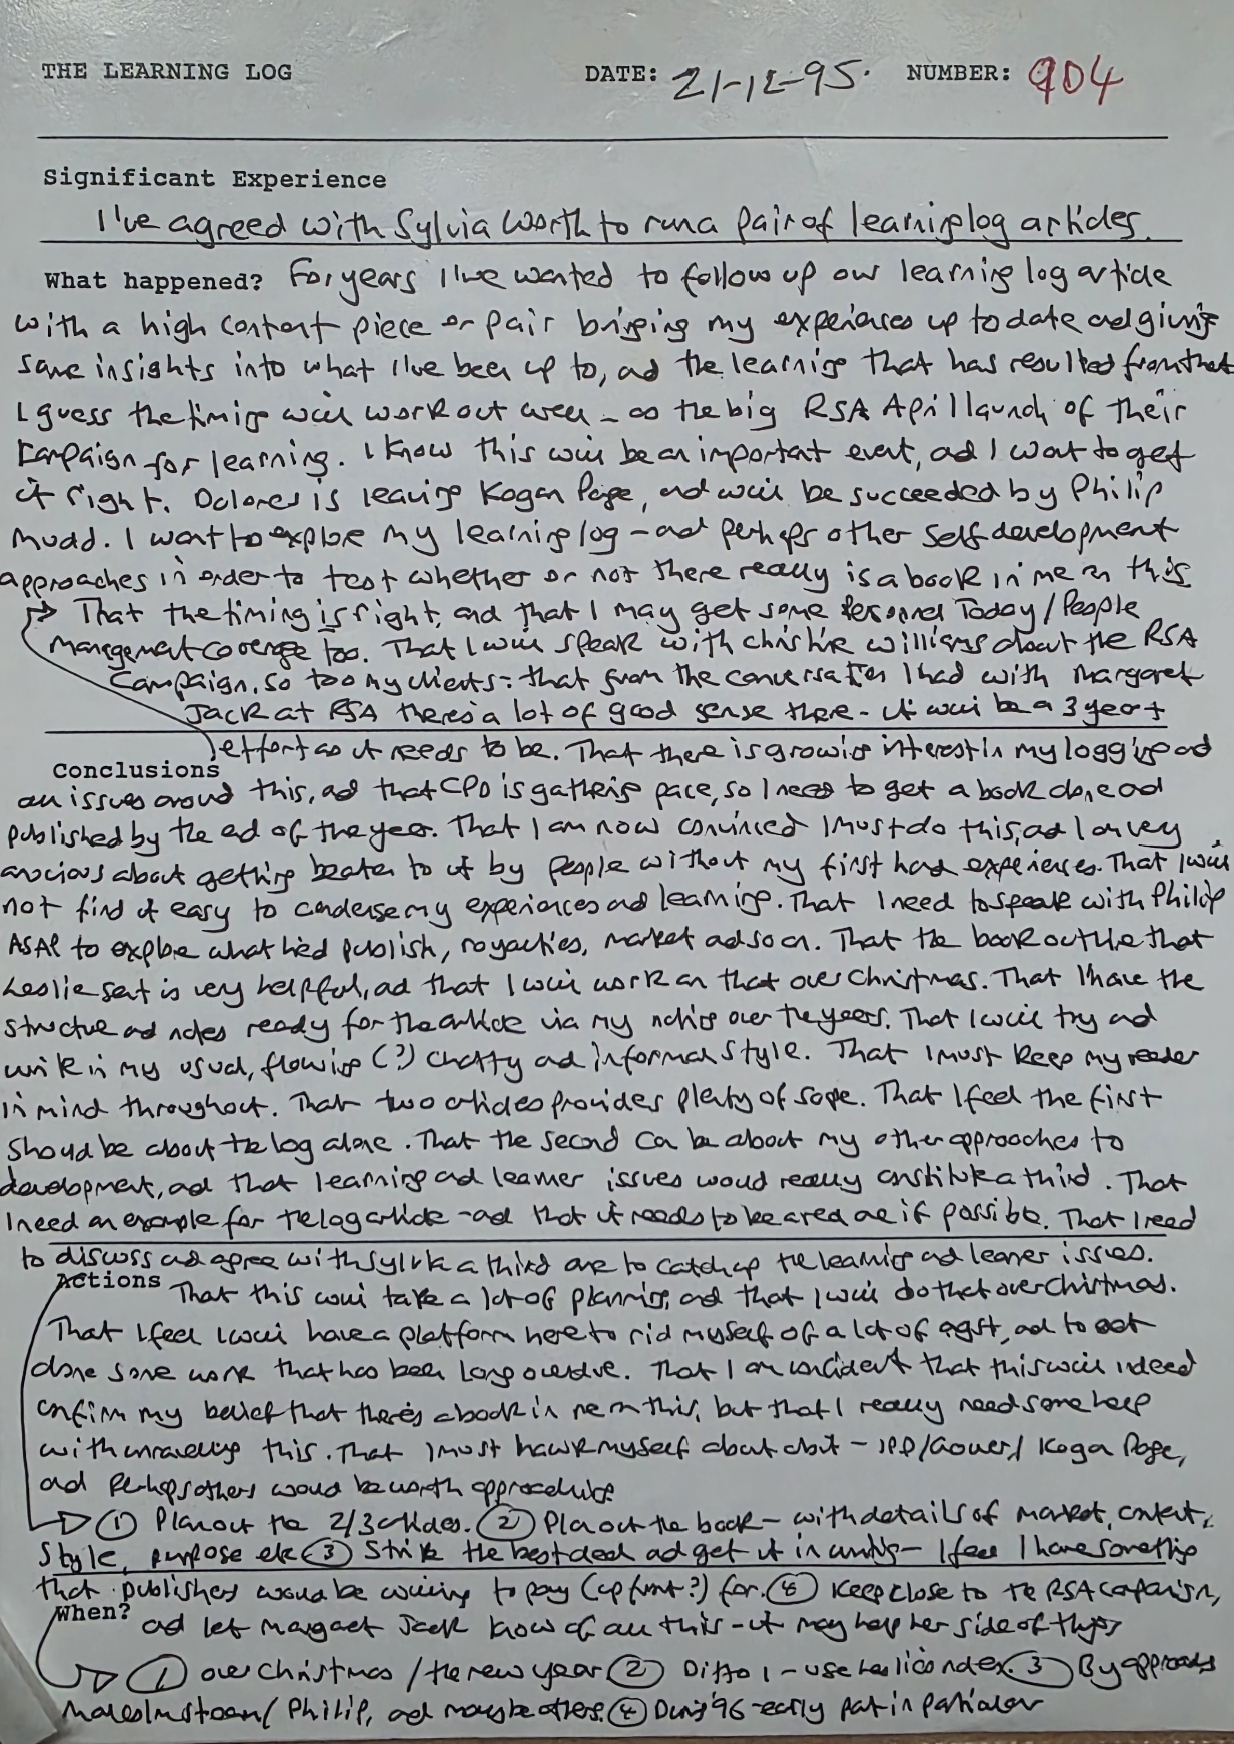 THE LEARNING LOG DATE: 21-12-95. NUMBER: 904
Significant Experience
I've agreed with Sylvia Worth to run a pair of learning log articles.
What happened? For years I've wanted to follow up our learning log article
with a high content piece or pair bringing my experiences up to date and giving
some insights into what I've been up to, and the learning that has resulted from that
I guess the timing will work out well - as the big RSA April launch of their
campaign for learning. I know this will be an important event, and I want to get
it right. Dolores is leaving Kogan Page, and will be succeeded by Philip
Mudd. I want to explore my learning log - and perhaps other self development
approaches in order to test whether or not there really is a book in me on this
That the timing is right, and that I may get some Personnel Today/People
Management coverage too. That I will speak with Christine Williams about the RSA
Campaign, so too my clients: that from the conversation I had with Margaret
Jack at RSA there's a lot of good sense there - it will be a 3 year
effort as it needs to be. That there is growing interest in my logging and
Conclusions
all issues around this, and that CPD is gathering pace, so I need to get a book done and
published by the end of the year. That I am now convinced I must do this, and I am very
anxious about getting beaten to it by people without my first hand experiences. That I will
not find it easy to condense my experiences and learning. That I need to speak with Philip
ASAP to explore what he'd publish, royalties, market and so on. That the book outline that
Leslie sent is very helpful, and that I will work on that over Christmas. That I have the
structure and notes ready for the article via my noting over the years. That I will try and
write in my usual, flowing (?) chatty and informal style. That I must keep my reader
in mind throughout. That two articles provides plenty of scope. That I feel the first
should be about the log alone. That the second can be about my other approaches to
development, and that learning and learner issues would really constitute a third. That
I need an example for the log article - and that it needs to be a red one if possible. That I need
to discuss and agree with Sylvia a third one to catch up the learning and learner issues.
Actions That this will take a lot of planning, and that I will do that over Christmas.
That I feel I will have a platform here to rid myself of a lot of angst, and to get
done some work that has been long overdue. That I am confident that this will indeed
confirm my belief that there's a book in me on this, but that I really need some help
with unravelling this. That I must hawk myself about a bit - IPD/Gower/Kogan Page,
and perhaps others would be worth approaching.
① Plan out the 2/3 articles. ② Plan out the book - with details of market, content,
style, purpose etc ③ Strike the best deal and get it in writing - I feel I have something
that publishers would be willing to pay (up front?) for. ④ Keep close to the RSA campaign,
When? and let Margaret Jack know of all this - it may help her side of things
① over Christmas / the new year ② Ditto 1 - use Leslie's index. ③ By approach
Philip, and maybe others. ④ During '96 - early part in particular